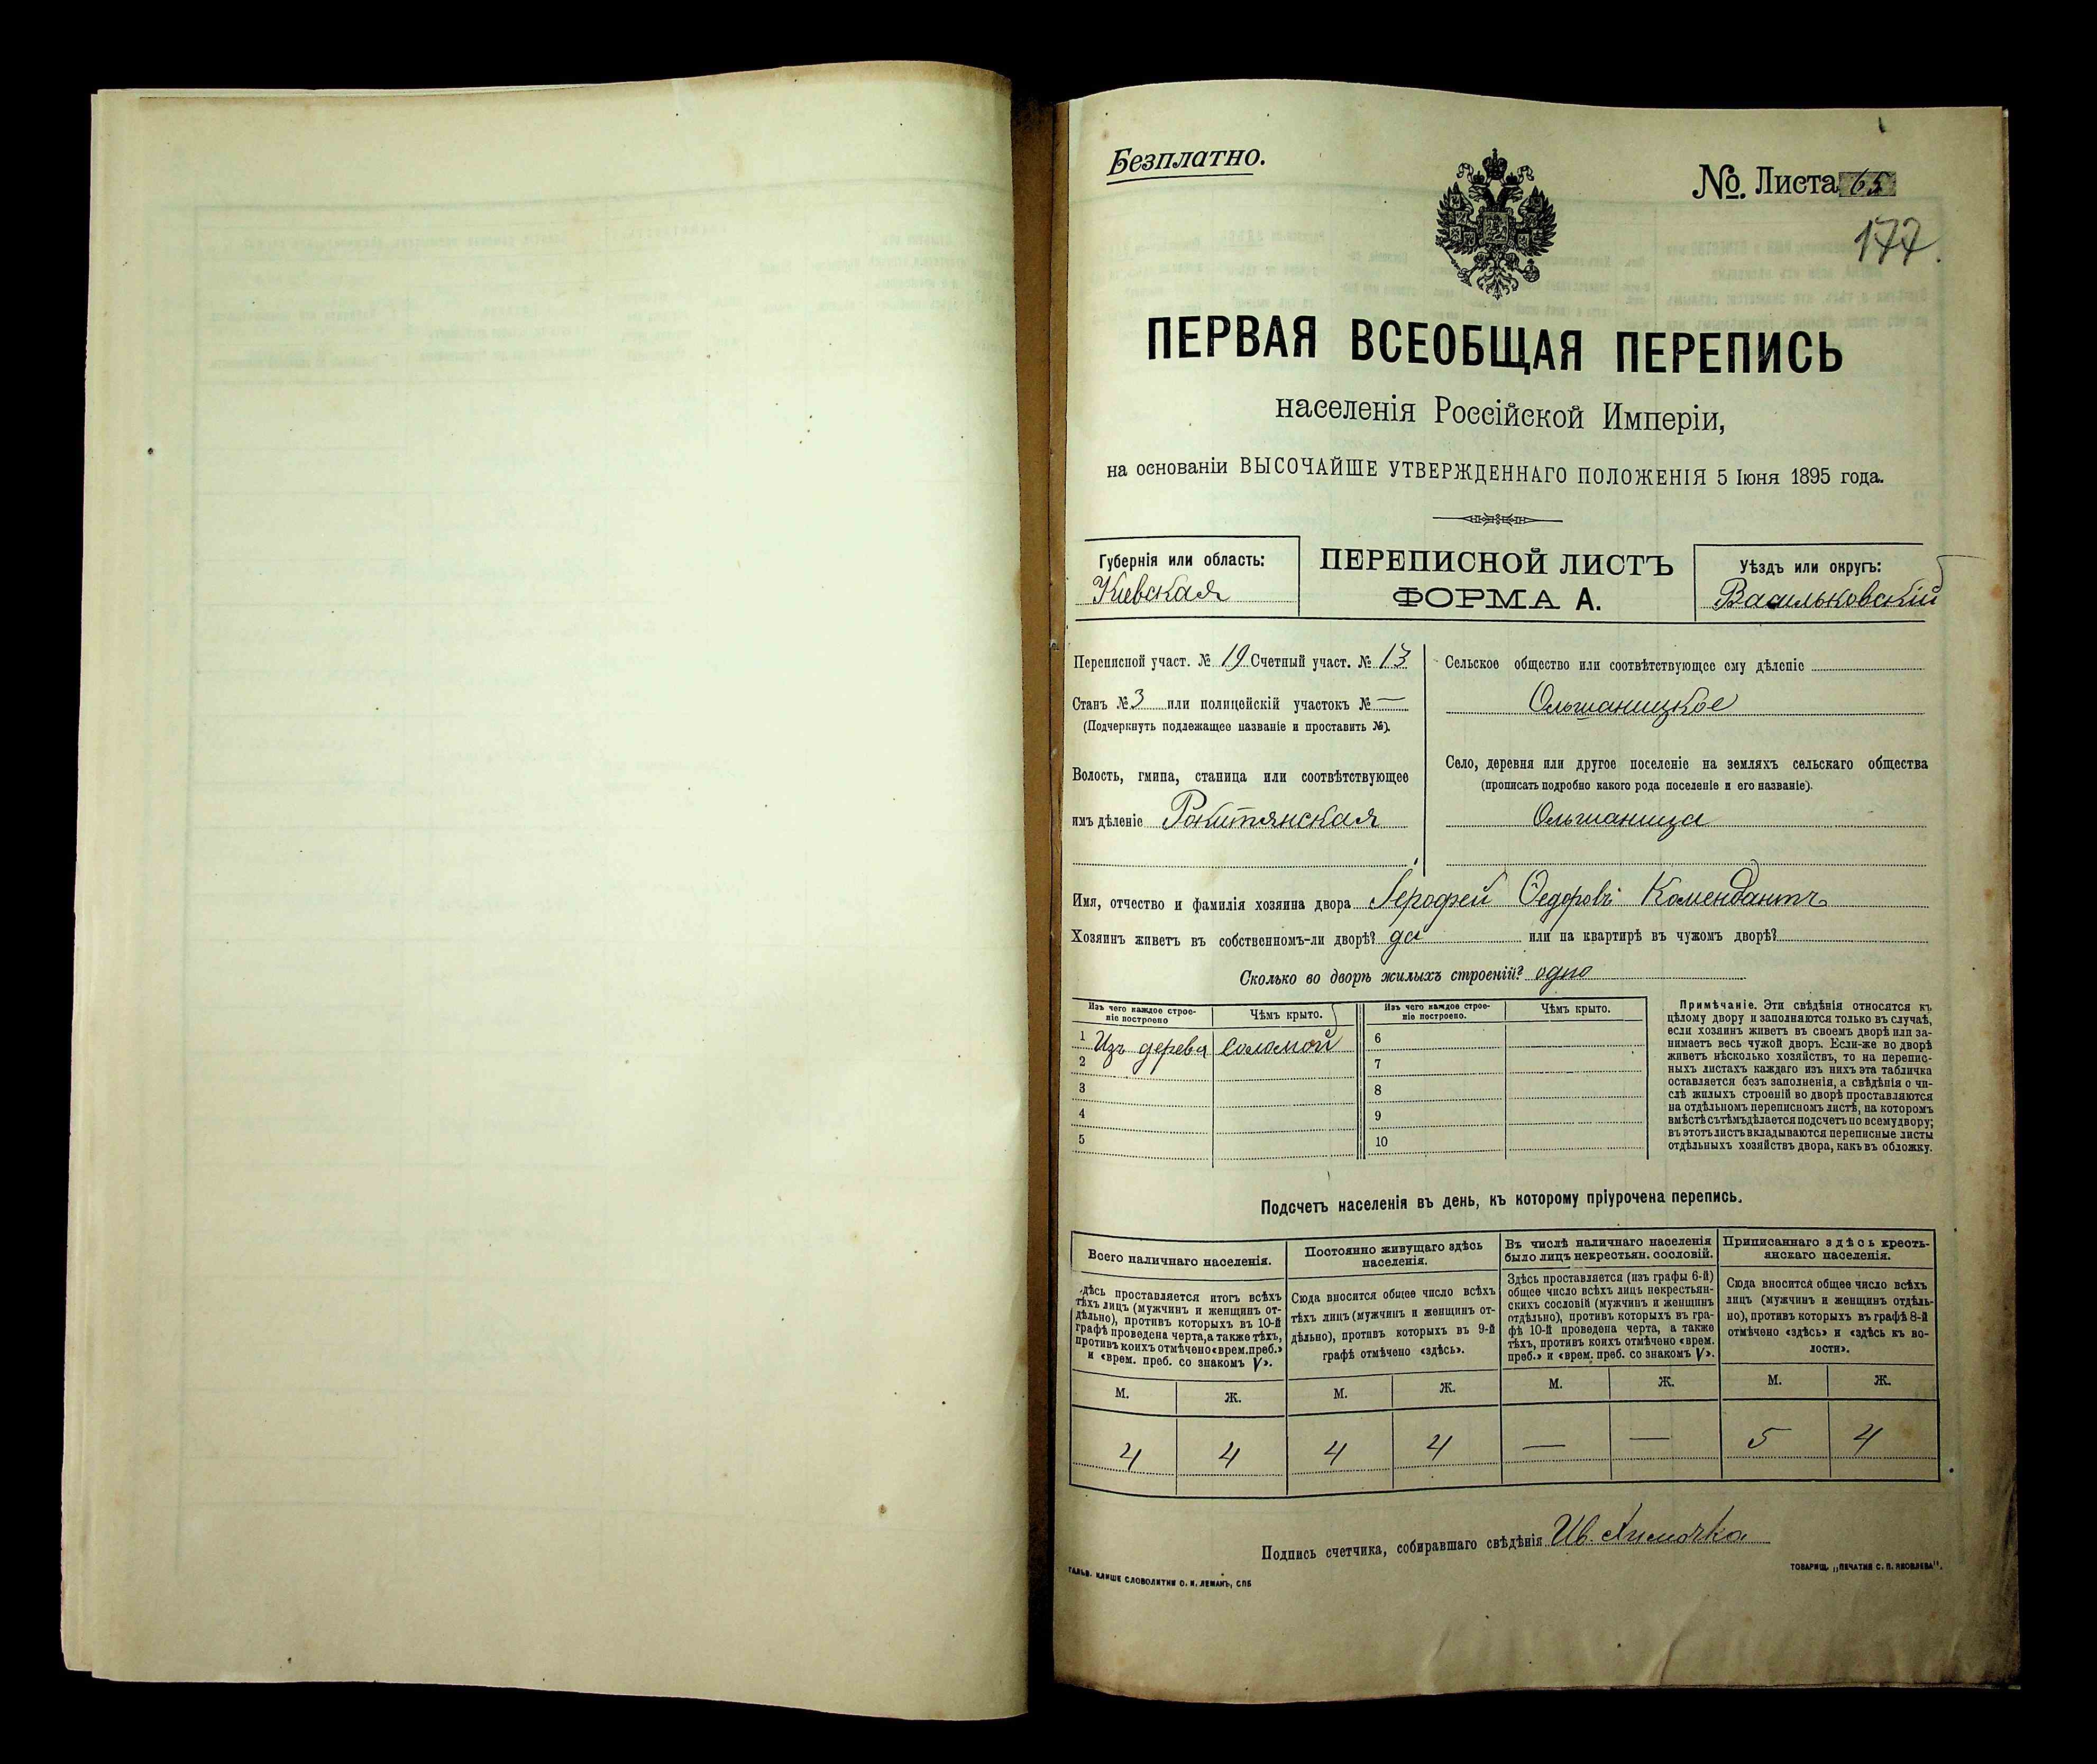 Безплатно.
№. Листа 65
177.
ПЕРВАЯ ВСЕОБЩАЯ ПЕРЕПИСЬ
населенія Россійской Имперіи,
на основаніи ВЫСОЧАЙШЕ УТВЕРЖДЕННАГО ПОЛОЖЕНІЯ 5 Іюня 1895 года.
Губернія или область:
Кіевская
ПЕРЕПИСНОЙ ЛИСТЪ
ФОРМА А.
Уѣздъ или округъ:
Васильковскій
Переписной участ. № 19 Счетный участ. № 13
Станъ № 3 или полицейскій участокъ № —
(Подчеркнуть подлежащее названіе и проставить №).
Волость, гмина, станица или соотвѣтствующее
имъ дѣленіе Рокитянская
Сельское общество или соотвѣтствующее ему дѣленіе
Ольшаницкое
Село, деревня или другое поселеніе на земляхъ сельскаго общества
(прописать подробно какого рода поселеніе и его названіе).
Ольшаница
Имя, отчество и фамилія хозяина двора Іерофей Ѳедоровъ Комендантъ
Хозяинъ живетъ въ собственномъ-ли дворѣ? да или на квартирѣ въ чужомъ дворѣ?
Сколько во дворѣ жилыхъ строеній? одно
Изъ чего каждое строе-
ніе построено
Чѣмъ крыто.
1 Изъ дерева соломой
2
3
4
5
Изъ чего каждое строе-
ніе построено.
Чѣмъ крыто.
6
7
8
9
10
Примѣчаніе. Эти свѣдѣнія относятся къ
цѣлому двору и заполняются только въ случаѣ,
если хозяинъ живетъ въ своемъ дворѣ или за-
нимаетъ весь чужой дворъ. Если-же во дворѣ
живетъ нѣсколько хозяйствъ, то на перепис-
ныхъ листахъ каждаго изъ нихъ эта табличка
оставляется безъ заполненія, а свѣдѣнія о чи-
слѣ жилыхъ строеній во дворѣ проставляются
на отдѣльномъ переписномъ листѣ, на которомъ
вмѣстѣ съ тѣмъ дѣлается подсчетъ по всему двору;
въ этотъ листъ вкладываются переписные листы
отдѣльныхъ хозяйствъ двора, какъ въ обложку.
Подсчетъ населенія въ день, къ которому пріурочена перепись.
Всего наличнаго населенія.
Здѣсь проставляется итогъ всѣхъ
тѣхъ лицъ (мужчинъ и женщинъ от-
дѣльно), противъ которыхъ въ 10-й
графѣ проведена черта, а также тѣхъ,
противъ коихъ отмѣчено «врем. преб.»
и «врем. преб. со знакомъ V».
М. Ж.
4 4
Постоянно живущаго здѣсь
населенія.
Сюда вносится общее число всѣхъ
тѣхъ лицъ (мужчинъ и женщинъ от-
дѣльно), противъ которыхъ въ 9-й
графѣ отмѣчено «здѣсь».
М. Ж.
4 4
Въ числѣ наличнаго населенія
было лицъ некрестьян. сословій.
Здѣсь проставляется (изъ графы 6-й)
общее число всѣхъ лицъ некрестьян-
скихъ сословій (мужчинъ и женщинъ
отдѣльно), противъ которыхъ въ гра-
фѣ 10-й проведена черта, а также
тѣхъ, противъ коихъ отмѣчено «врем.
преб.» и «врем. преб. со знакомъ V».
М. Ж.
— —
Приписаннаго здѣсь кресть-
янскаго населенія.
Сюда вносится общее число всѣхъ
лицъ (мужчинъ и женщинъ отдѣль-
но), противъ которыхъ въ графѣ 8-й
отмѣчено «здѣсь» и «здѣсь къ во-
лости».
М. Ж.
5 4
Подпись счетчика, собиравшаго свѣдѣнія Ив.
ГАЛЬВ. КЛИШЕ СЛОВОЛИТНИ О. И. ЛЕМАНЪ, СПБ
ТОВАРИЩ. „ПЕЧАТНЯ С. П. ЯКОВЛЕВА".